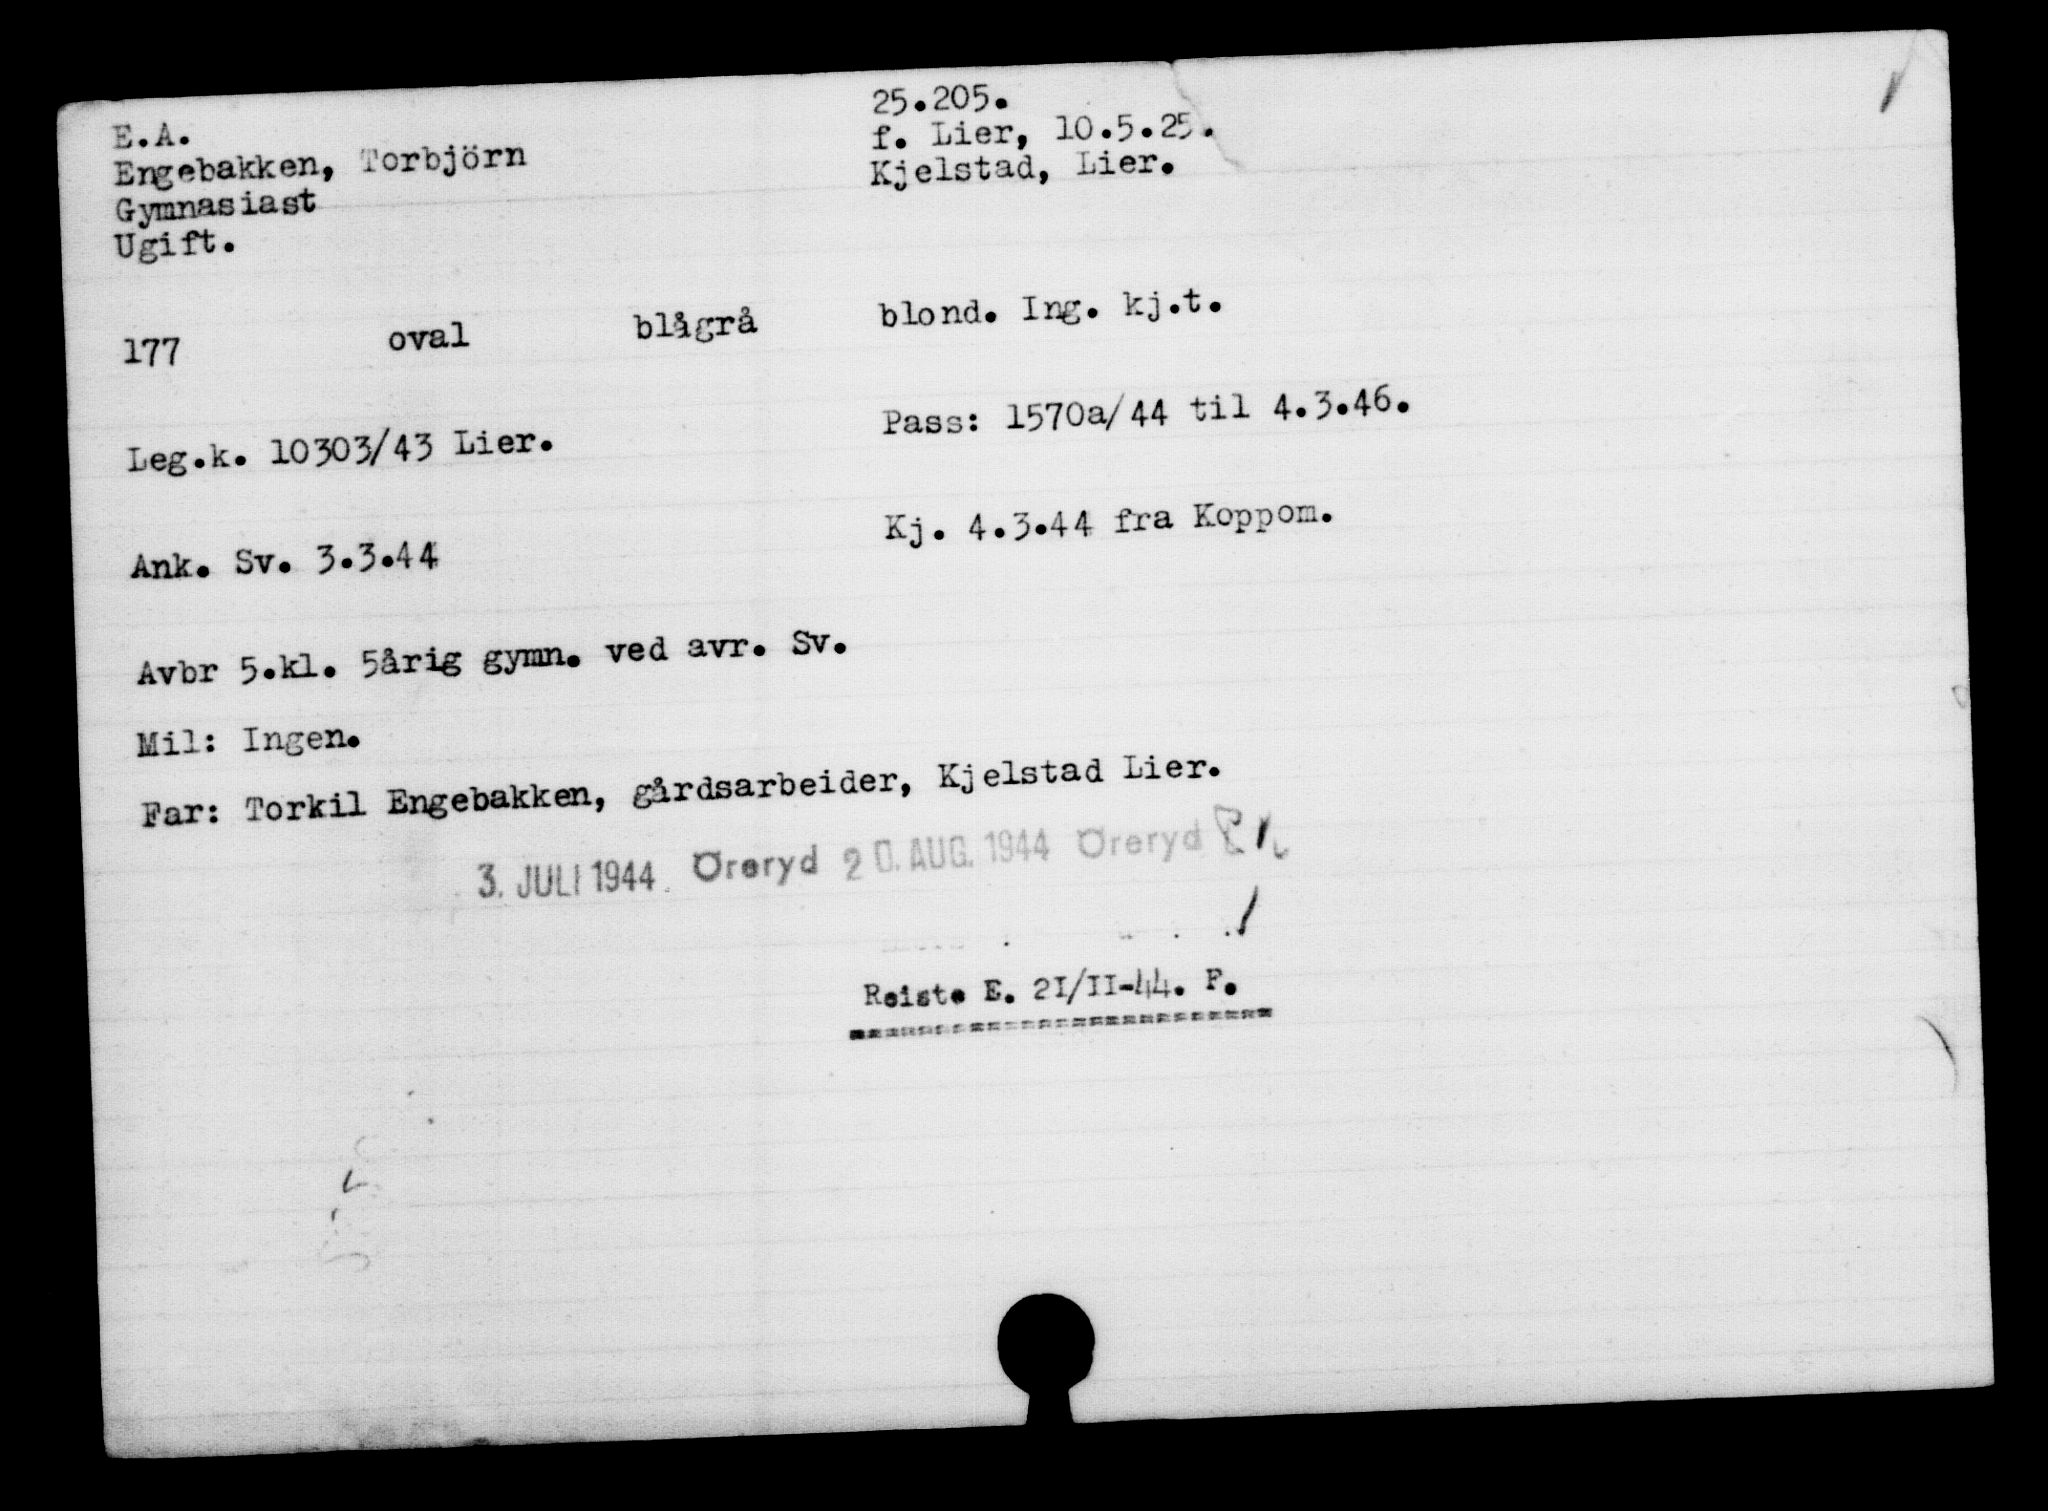 E.A.
Engebakken, Torbjörn
Gymnasiast
Ugift.
25.205.
f. Lier, 10.5.25.
Kjelstad, Lier.
177 oval blågrå blond. Ing. kj.t.
Leg.k. 10303/43 Lier.
Pass: 1570a/44 til 4.3.46.
Ank. Sv. 3.3.44
Kj. 4.3.44 fra Koppom.
Avbr 5.kl. 5årig gymn. ved avr. Sv.
Mil: Ingen.
Far: Torkil Engebakken, gårdsarbeider, Kjelstad Lier.
3. JULI 1944 Öreryd 20. AUG. 1944 Öreryd
Reiste E. 2I/II-44. F.